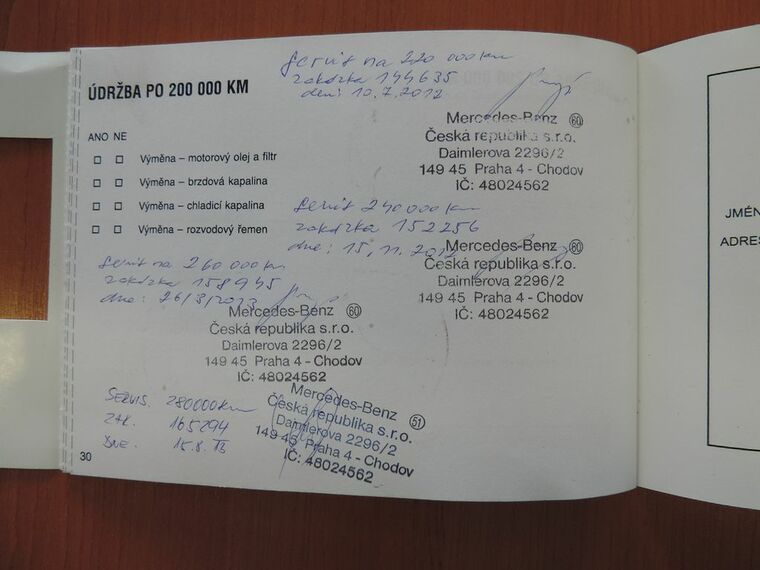 servis na 220 000 km
zakázka 144635
den: 10.7.2012
ÚDRŽBA PO 200 000 KM
Mercedes-Benz 60
Česká republika s.r.o.
Daimlerova 2296/2
149 45 Praha 4 - Chodov
IČ: 48024562
ANO NE
Výměna – motorový olej a filtr
Výměna – brzdová kapalina
Výměna – chladicí kapalina
Výměna – rozvodový řemen
servis 240000 km
zakázka 152256
dne: 15.11.2012
Mercedes-Benz 60
Česká republika s.r.o.
Daimlerova 2296/2
149 45 Praha 4 - Chodov
IČ: 48024562
servis na 260 000 km
zakázka 158945
dne: 26/3/2013
Mercedes-Benz 60
Česká republika s.r.o.
Daimlerova 2296/2
149 45 Praha 4 - Chodov
IČ: 48024562
SERVIS. 280000 km
ZAK. 165294
DNE. 15.8.
Mercedes-Benz 51
Česká republika s.r.o.
Daimlerova 2296/2
149 45 Praha 4 - Chodov
IČ: 48024562
30
JMÉN
ADRES